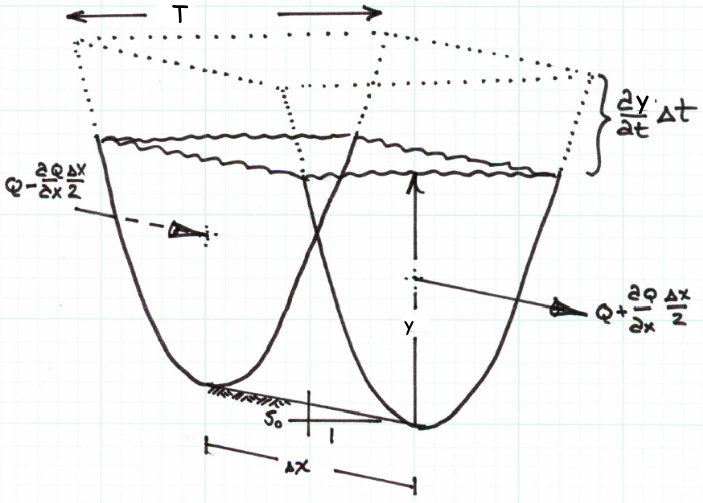 T
∂y/∂t Δt
Q-∂Q/∂x Δx/2
y
Q+∂Q/∂x Δx/2
S₀
1
Δx